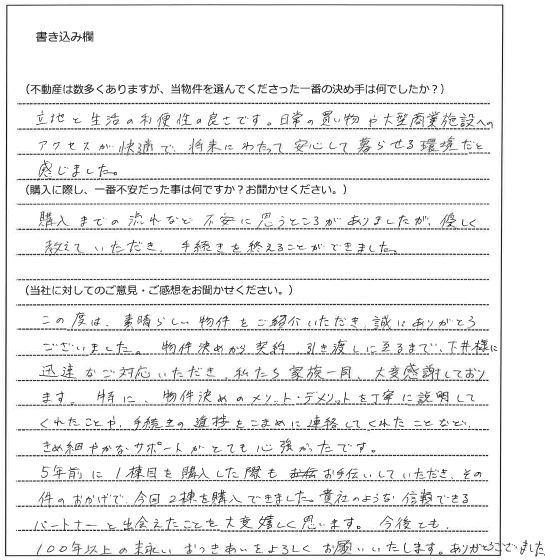 書き込み欄
（不動産は数多くありますが、当物件を選んでくださった一番の決め手は何でしたか？）
立地と生活の利便性の良さです。日常の買い物や大型商業施設への
アクセスが快適で、将来にわたって安心して暮らせる環境だと
感じました。
（購入に際し、一番不安だった事は何ですか？お聞かせください。）
購入までの流れなど不安に思うところがありましたが、優しく
教えていただき、手続きを終えることができました。
（当社に対してのご意見・ご感想をお聞かせください。）
この度は、素晴らしい物件をご紹介いただき、誠にありがとう
ございました。物件決めから契約、引き渡しに至るまで、下井様に
迅速なご対応いただき、私たち家族一同、大変感謝しており
ます。特に、物件決めのメリット・デメリットを丁寧に説明して
くれたことや、手続きの進捗をこまめに連絡してくれたことなど、
きめ細やかなサポートがとても心強かったです。
5年前に1棟目を購入した際もお手伝いしていただき、その
件のおかげで、今回2棟を購入できました。貴社のような信頼できる
パートナーと出会えたことを大変嬉しく思います。今後とも、
100年以上の末永いおつきあいをよろしくお願いいたします。ありがとうございました